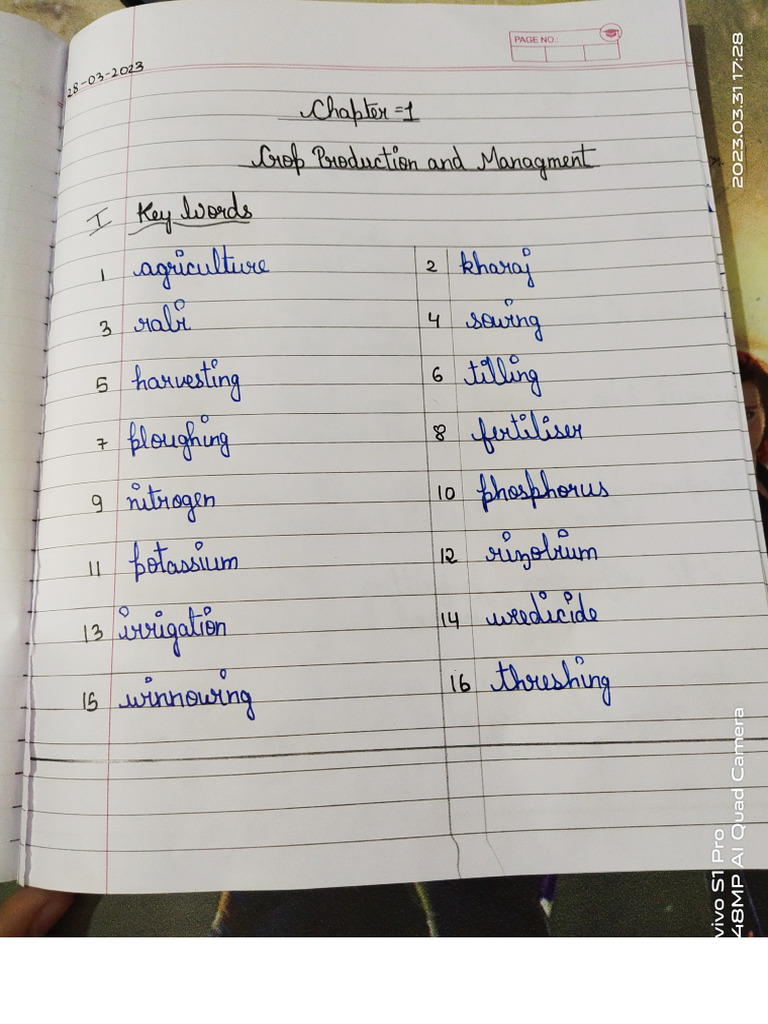 PAGE NO.:
28-03-2023
Chapter =1
Crop Production and Managment
I Key Words
1 agriculture 2 kharaj
3 rabi 4 sowing
5 harvesting 6 tilling
7 ploughing 8 fertiliser
9 nitrogen 10 phosphorus
11 potassium 12 rizobium
13 irrigation 14 weedicide
15 winnowing 16 threshing
2023.03.31 17:28
vivo S1 Pro
48MP AI Quad Camera